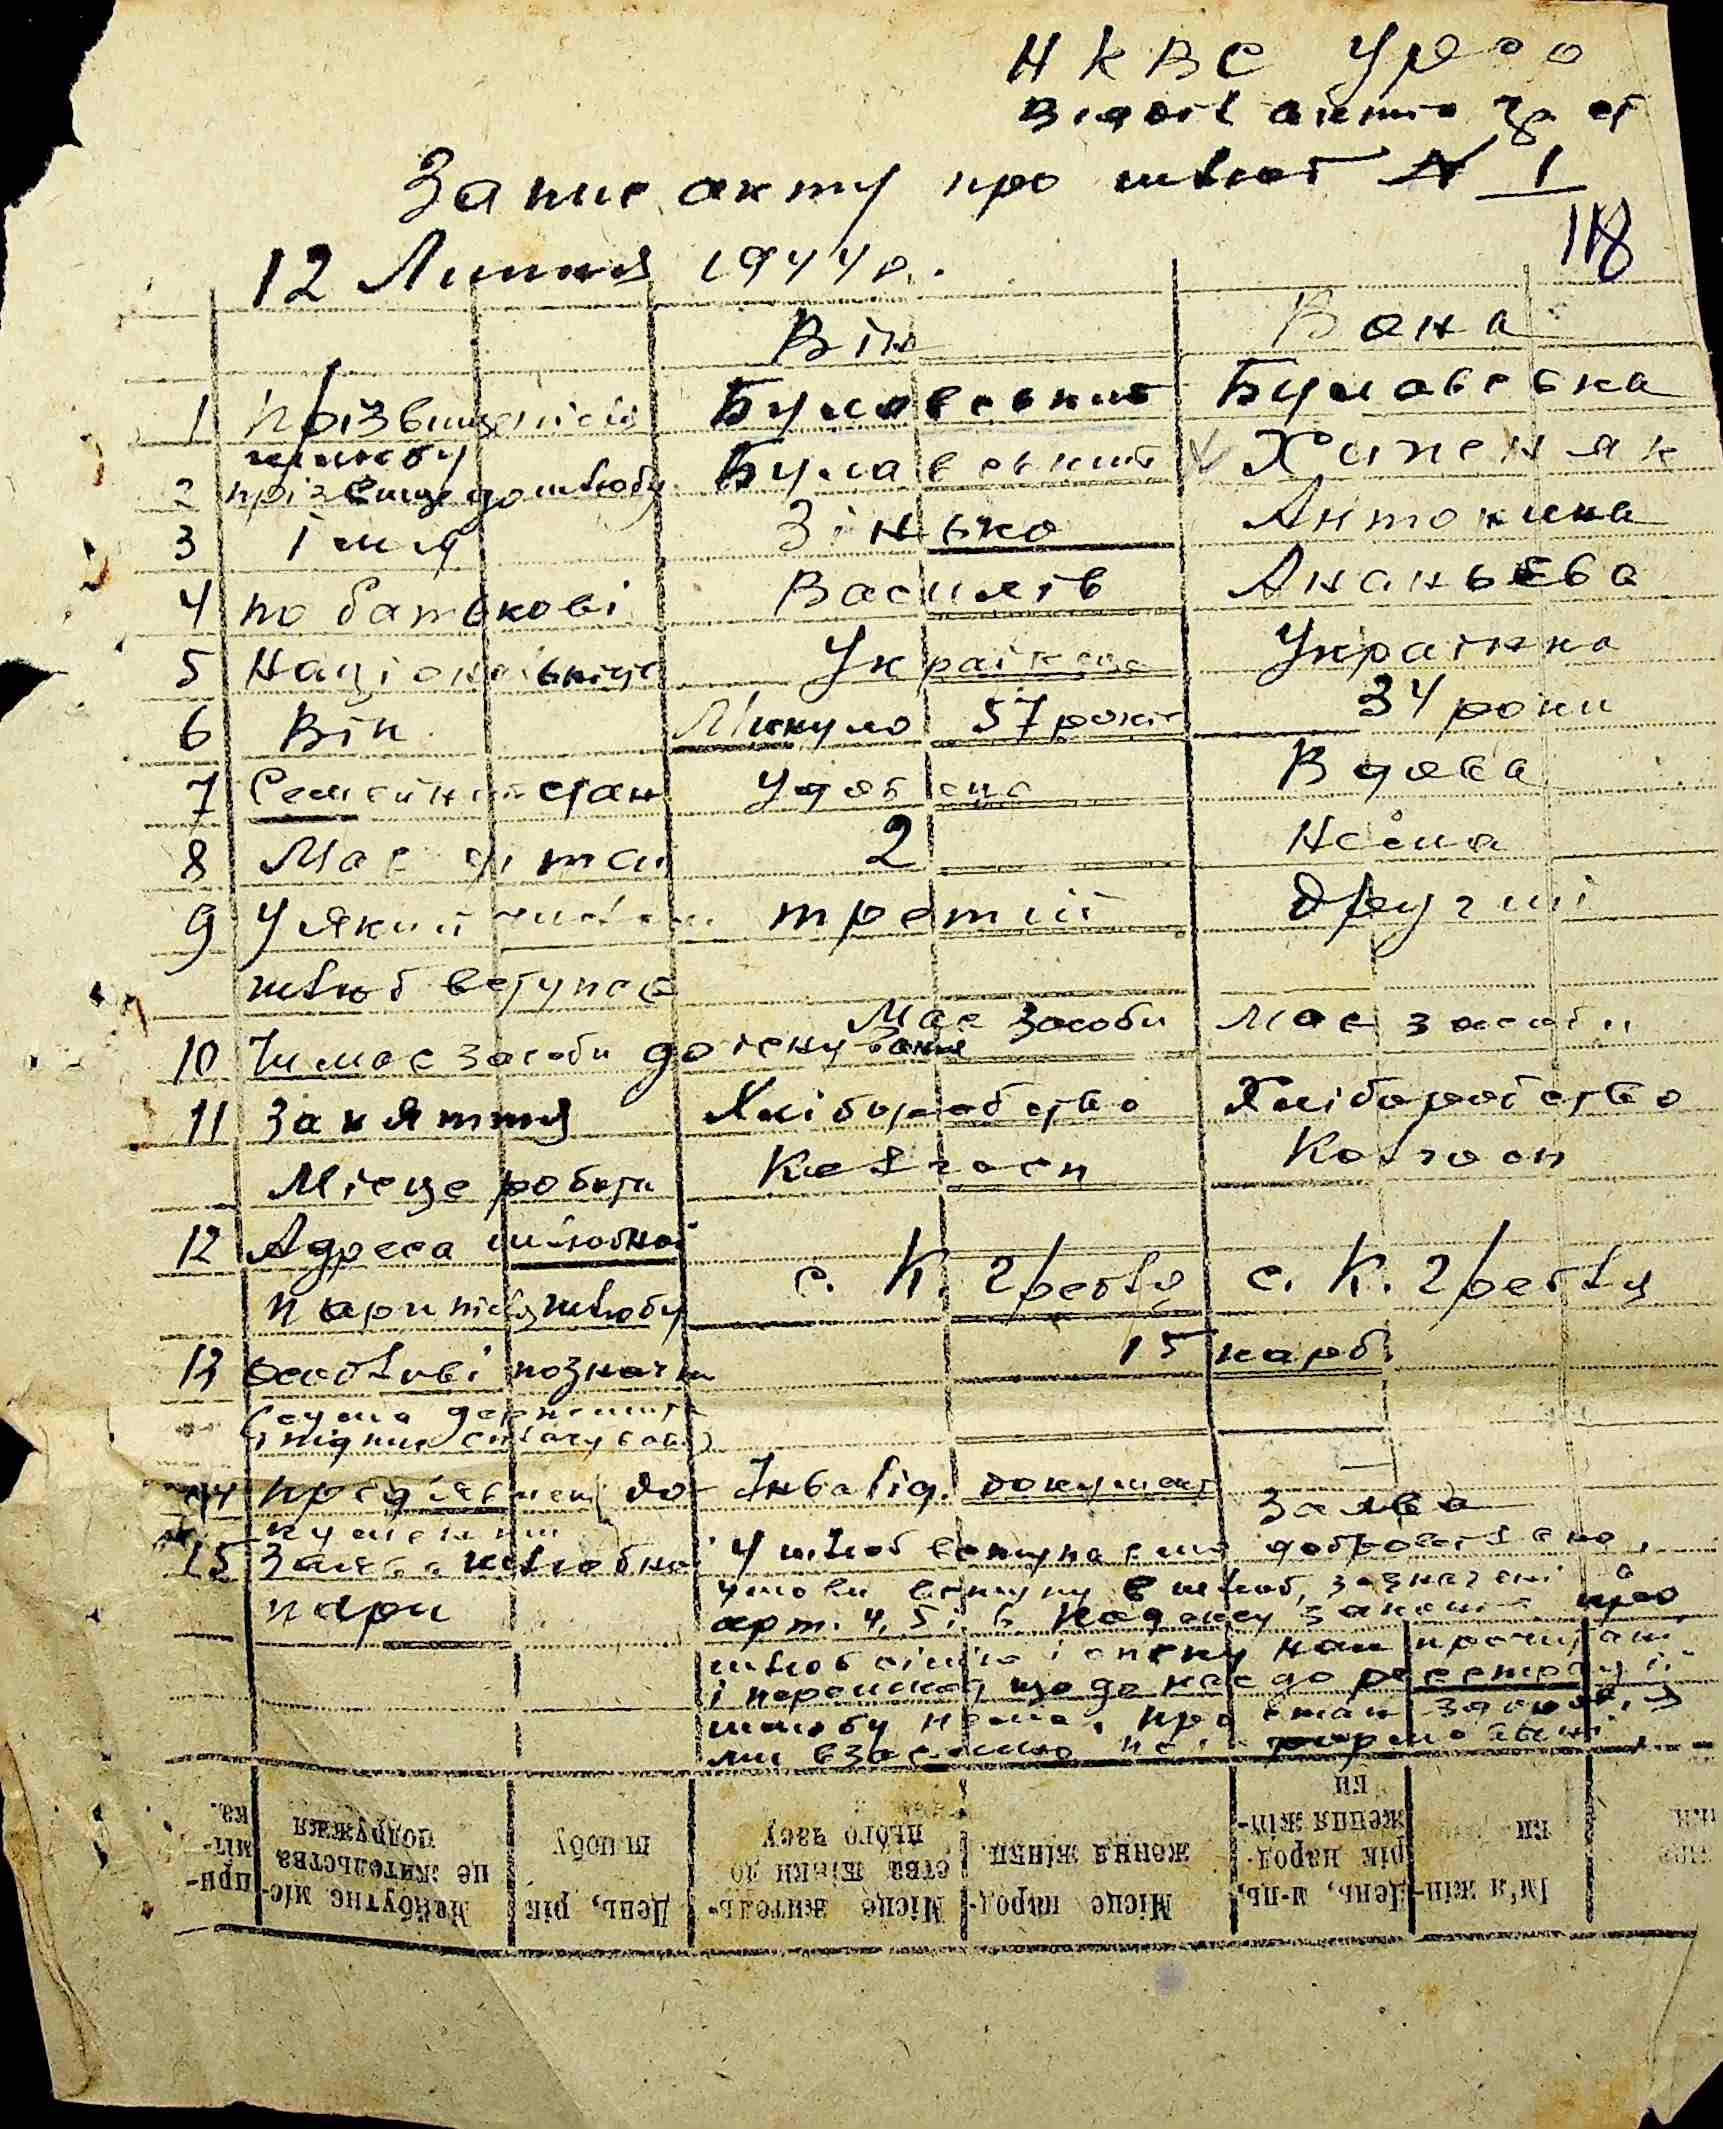 НКВС УРСР
Відділ актів гр. ст
Запис акту про шлюб № 1
118
12 Липня 1944 р.
Він Вона
1 Прізвище після шлюбу Булавський Булавська
2 прізвище до шлюбу Булавський Хипеняк
3 імя Зінько Антонина
4 по батькові Василів Ананьєва
5 Національність Українець Українка
6 Вік Минуло 57 років 34 роки
7 Семейний стан Удовець Вдова
8 Має дітей 2 Нема
9 У який третий другий
шлюб вступає
10 Чи має засоби до існування Має засоби Має засоби
11 Заняття Хліборобство Хліборобство
Місце роботи Колгосп Колгосп
12 Адреса шлюбної
пари після шлюбу с. К. Гребля с. К. Гребля
13 особливі позначки 15 карб.
(сума держмита
і підпис
14 пред'явлені до- Інвалід. документ Заява
кументи
15 Заява шлюбної У шлюб вступаємо добровільно,
пари умови вступу в шлюб, зазначені в
арт. 4, 5 і 6 Кодексу законів про
шлюб сімю і опеку нам прочитані
і перешкод що до нас до реєстрації
шлюбу нема, про стан здоровья
ми взаємно поінформовані.
Майбутнє міс-
це жительства
подружжя
День, рік
шлюбу
Місце житель-
ства жінки до
цього часу
Місце народ-
ження жінки
День, м-ць,
рік народ-
ження жін-
ки
Ім'я жін-
ки